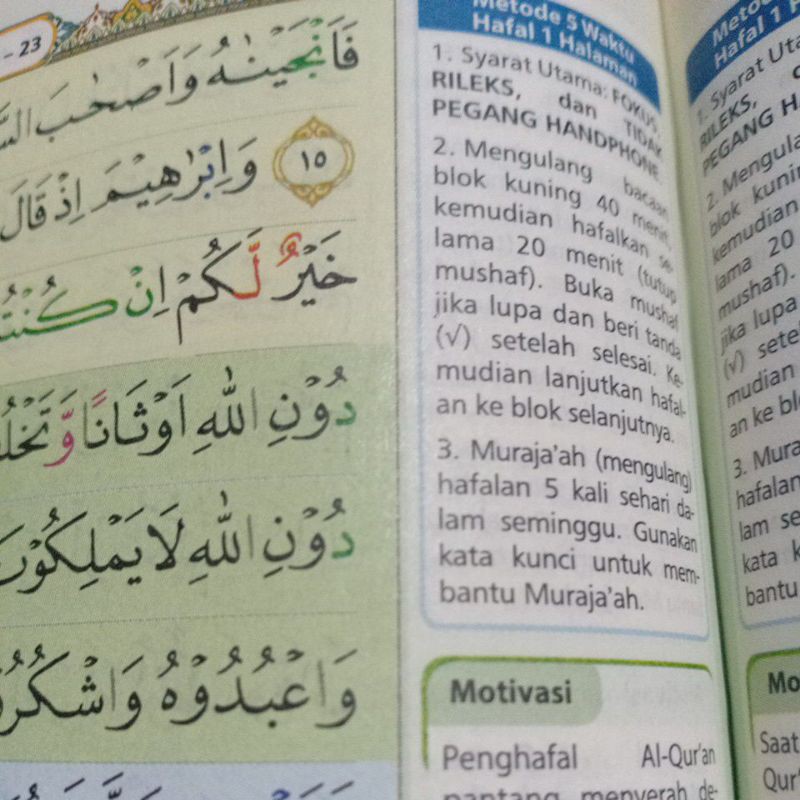 - 23
فَاَنْجَيْنٰهُ وَاَصْحٰبَ
١٥ وَاِبْرٰهِيْمَ اِذْ قَالَ
خَيْرٌ لَّكُمْ اِنْ
دُوْنِ اللّٰهِ اَوْثَانًا
دُوْنِ اللّٰهِ لَا يَمْلِكُوْنَ
وَاعْبُدُوْهُ
Metode 5 Waktu
Hafal 1 Halaman
1. Syarat Utama: FOKUS,
RILEKS, dan TIDAK
PEGANG HANDPHONE
2. Mengulang bacaan
blok kuning 40 menit,
kemudian hafalkan se-
lama 20 menit (tutup
mushaf). Buka mushaf
jika lupa dan beri tanda
(√) setelah selesai. Ke-
mudian lanjutkan hafal-
an ke blok selanjutnya.
3. Muraja'ah (mengulang)
hafalan 5 kali sehari da-
lam seminggu. Gunakan
kata kunci untuk mem-
bantu Muraja'ah.
Motivasi
Penghafal Al-Qur'an
pantang menyerah de-
Hafal 1
1. Syarat
RILEKS,
PEGANG
2.
blok
kemudian
lama 20
mushaf).
jika lupa
(√)
mudian
an ke
3.
hafalan
lam
kata
bantu
Saat